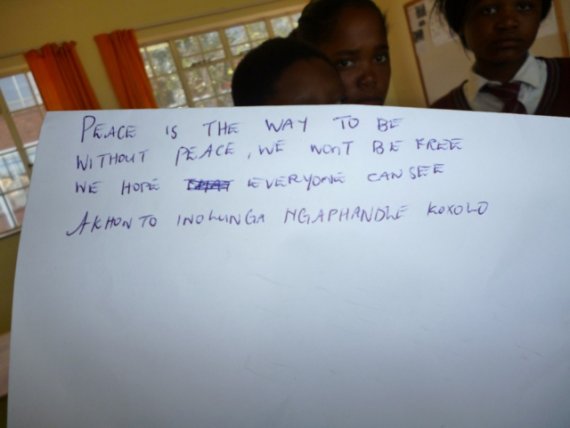 PEACE IS THE WAY TO BE
WITHOUT PEACE, WE WONT BE FREE
WE HOPE EVERYONE CAN SEE
AKHONTO INOLUNGA NGAPHANDLE KOXOLO